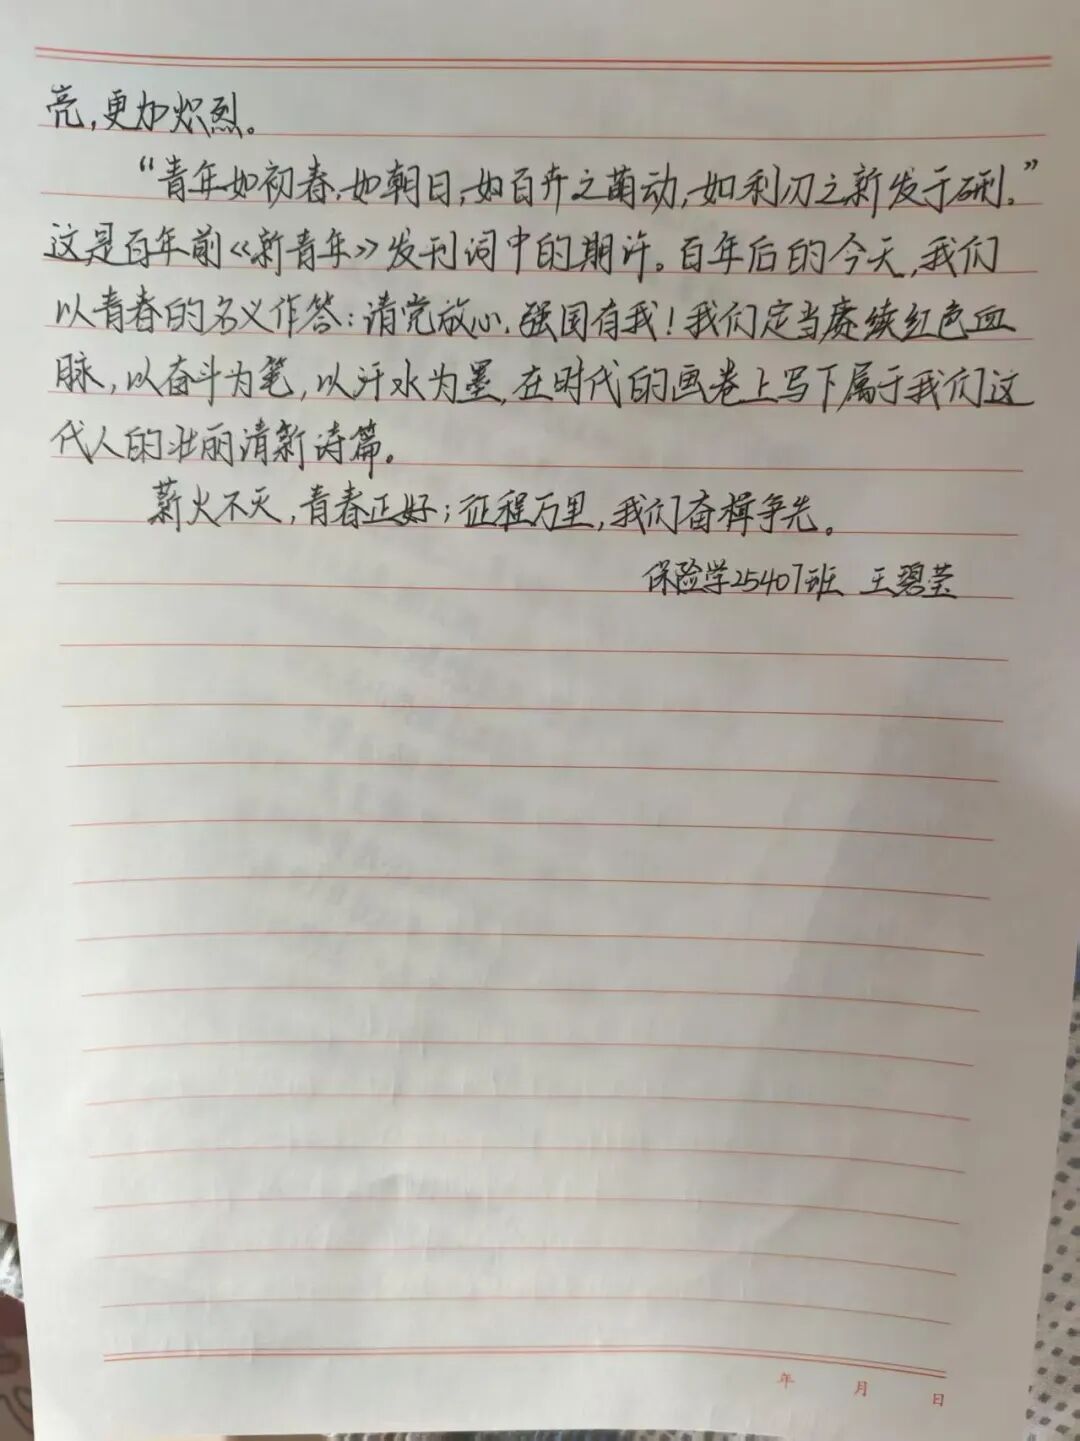 亮,更加炽烈。
“青年如初春,如朝日,如百卉之萌动,如利刃之新发于硎。”
这是百年前《新青年》发刊词中的期许。百年后的今天,我们
以青春的名义作答:请党放心,强国有我!我们定当赓续红色血
脉,以奋斗为笔,以汗水为墨,在时代的画卷上写下属于我们这
代人的壮丽清新诗篇。
薪火不灭,青春正好;征程万里,我们奋楫争先。
保险学25407班 王碧莹
年 月 日